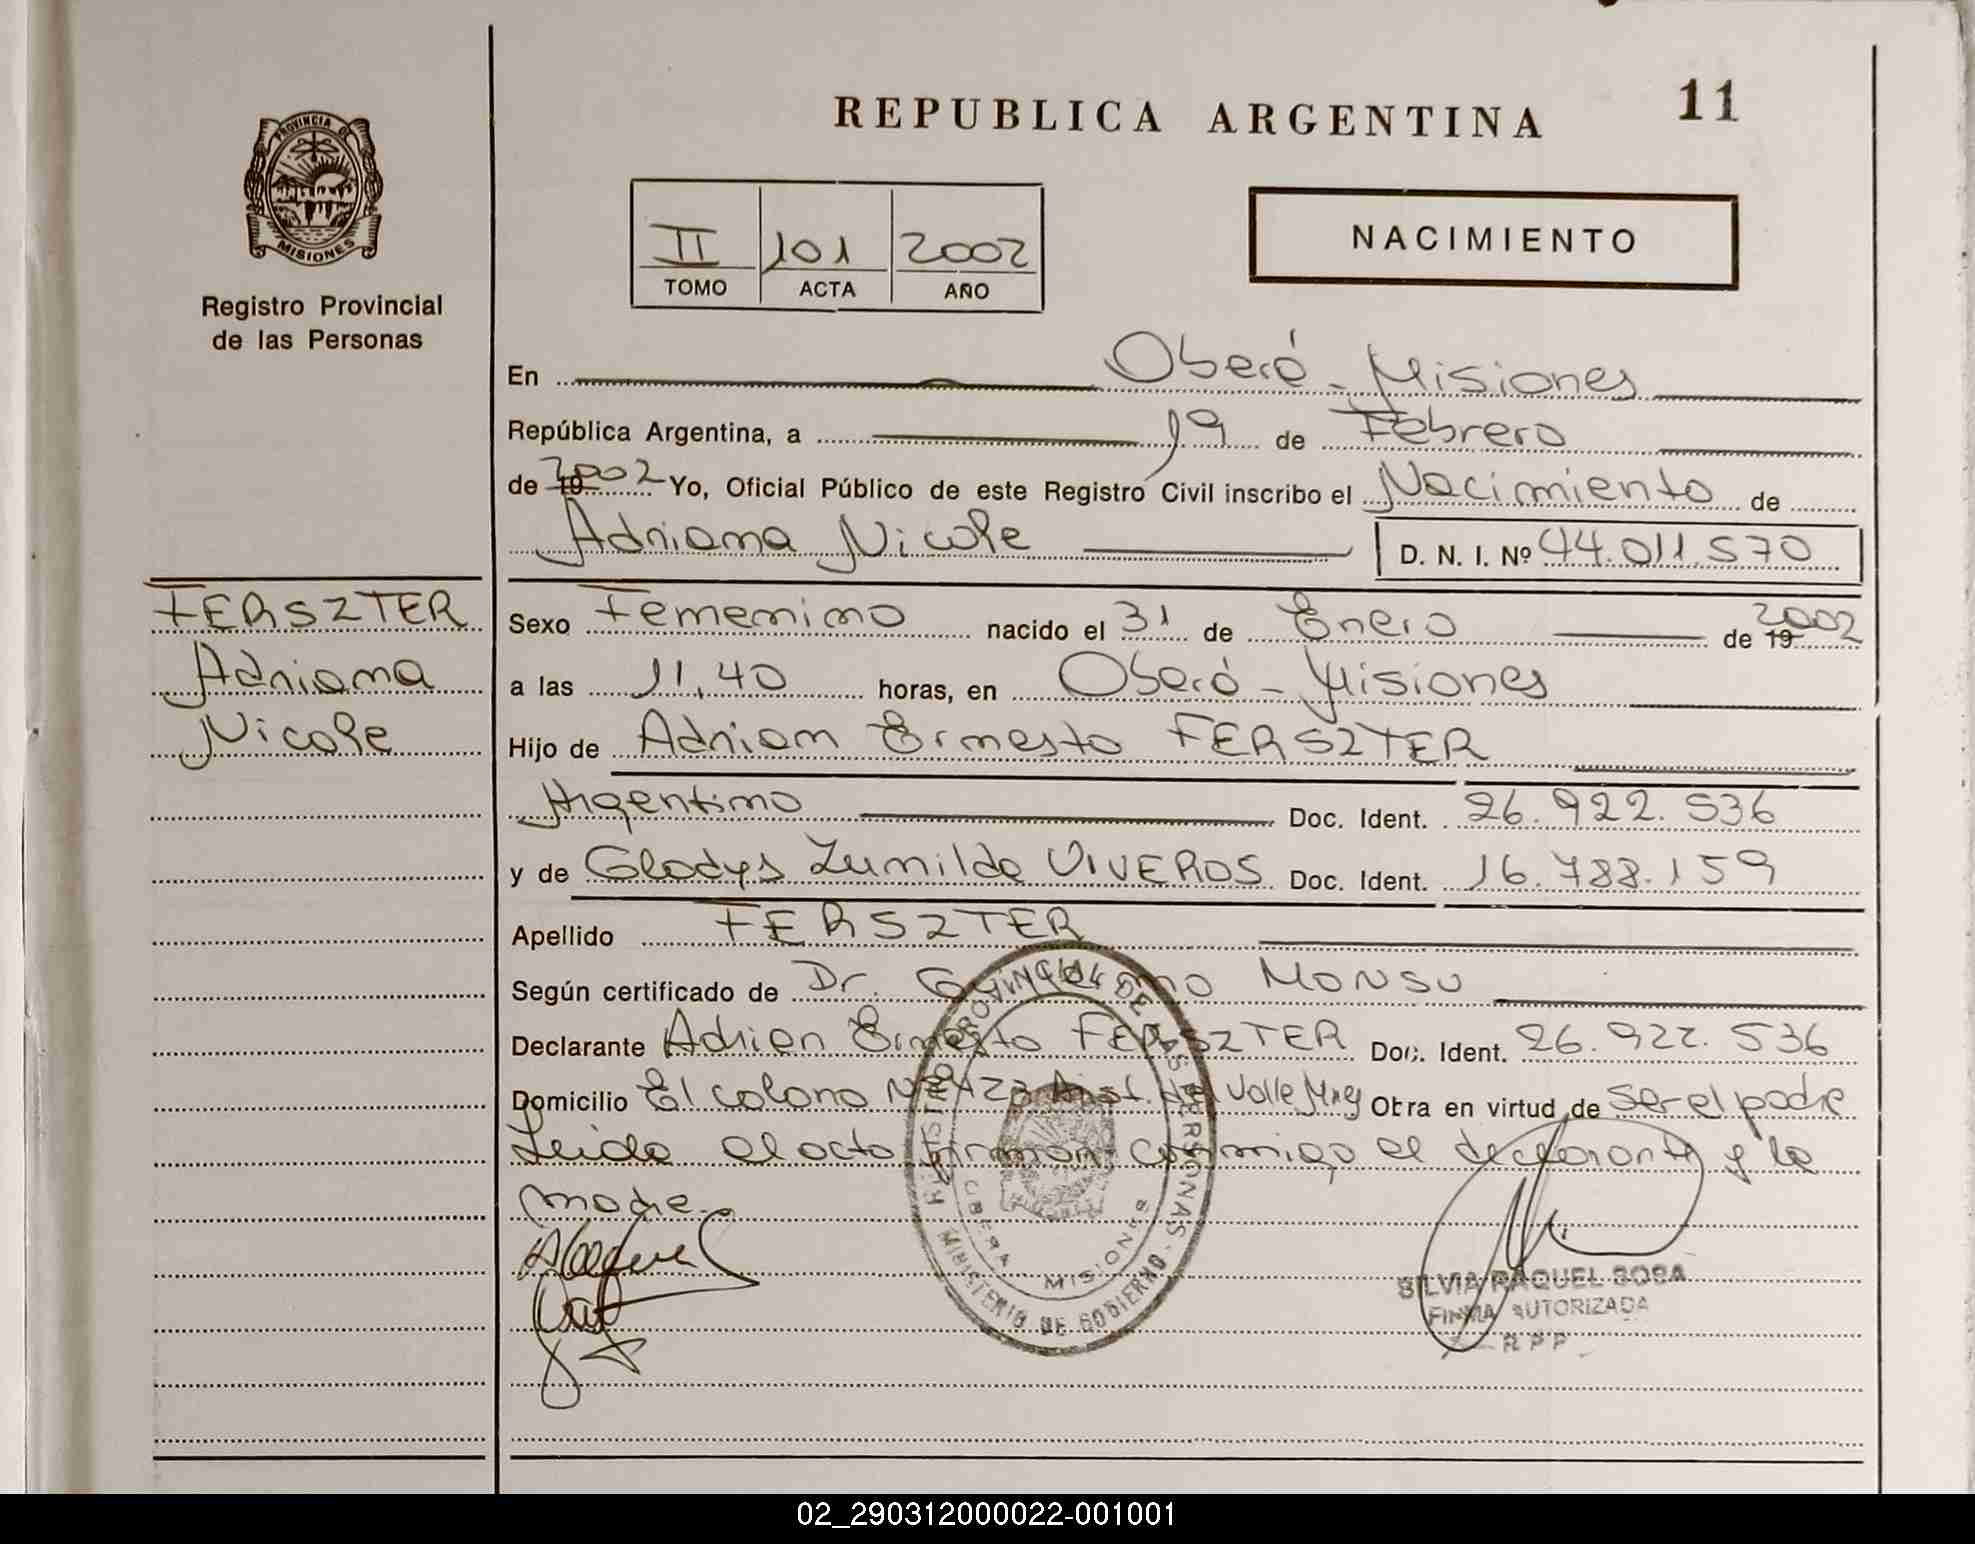 PROVINCIA DE
MISIONES
Registro Provincial
de las Personas
REPUBLICA ARGENTINA
11
II 101 2002
TOMO ACTA AÑO
NACIMIENTO
En Oberá - Misiones
República Argentina, a 19 de Febrero
de 19 2002 Yo, Oficial Público de este Registro Civil inscribo el Nacimiento de
Adriana Nicole D. N. I. Nº 44.011.570
FERSZTER
Adriana
Nicole
Sexo Femenino nacido el 31 de Enero de 19 2002
a las 11,40 horas, en Oberá - Misiones
Hijo de Adrian Ernesto FERSZTER
Argentino Doc. Ident. 26.922.536
y de Gladys Zunilda VIVEROS Doc. Ident. 16.788.159
Apellido FERSZTER
Según certificado de Dr. MONSU
Declarante Adrian Ernesto FERSZTER Doc. Ident. 26.922.536
Domicilio El colono Nº Valle Mnes Obra en virtud de ser el padre
Leida el acta firman conmigo el declarante y la
madre.
REGISTRO PROVINCIAL DE LAS PERSONAS - MINISTERIO DE GOBIERNO
OBERA MISIONES
SILVIA RAQUEL SOSA
FIRMA AUTORIZADA
R P P
02_290312000022-001001